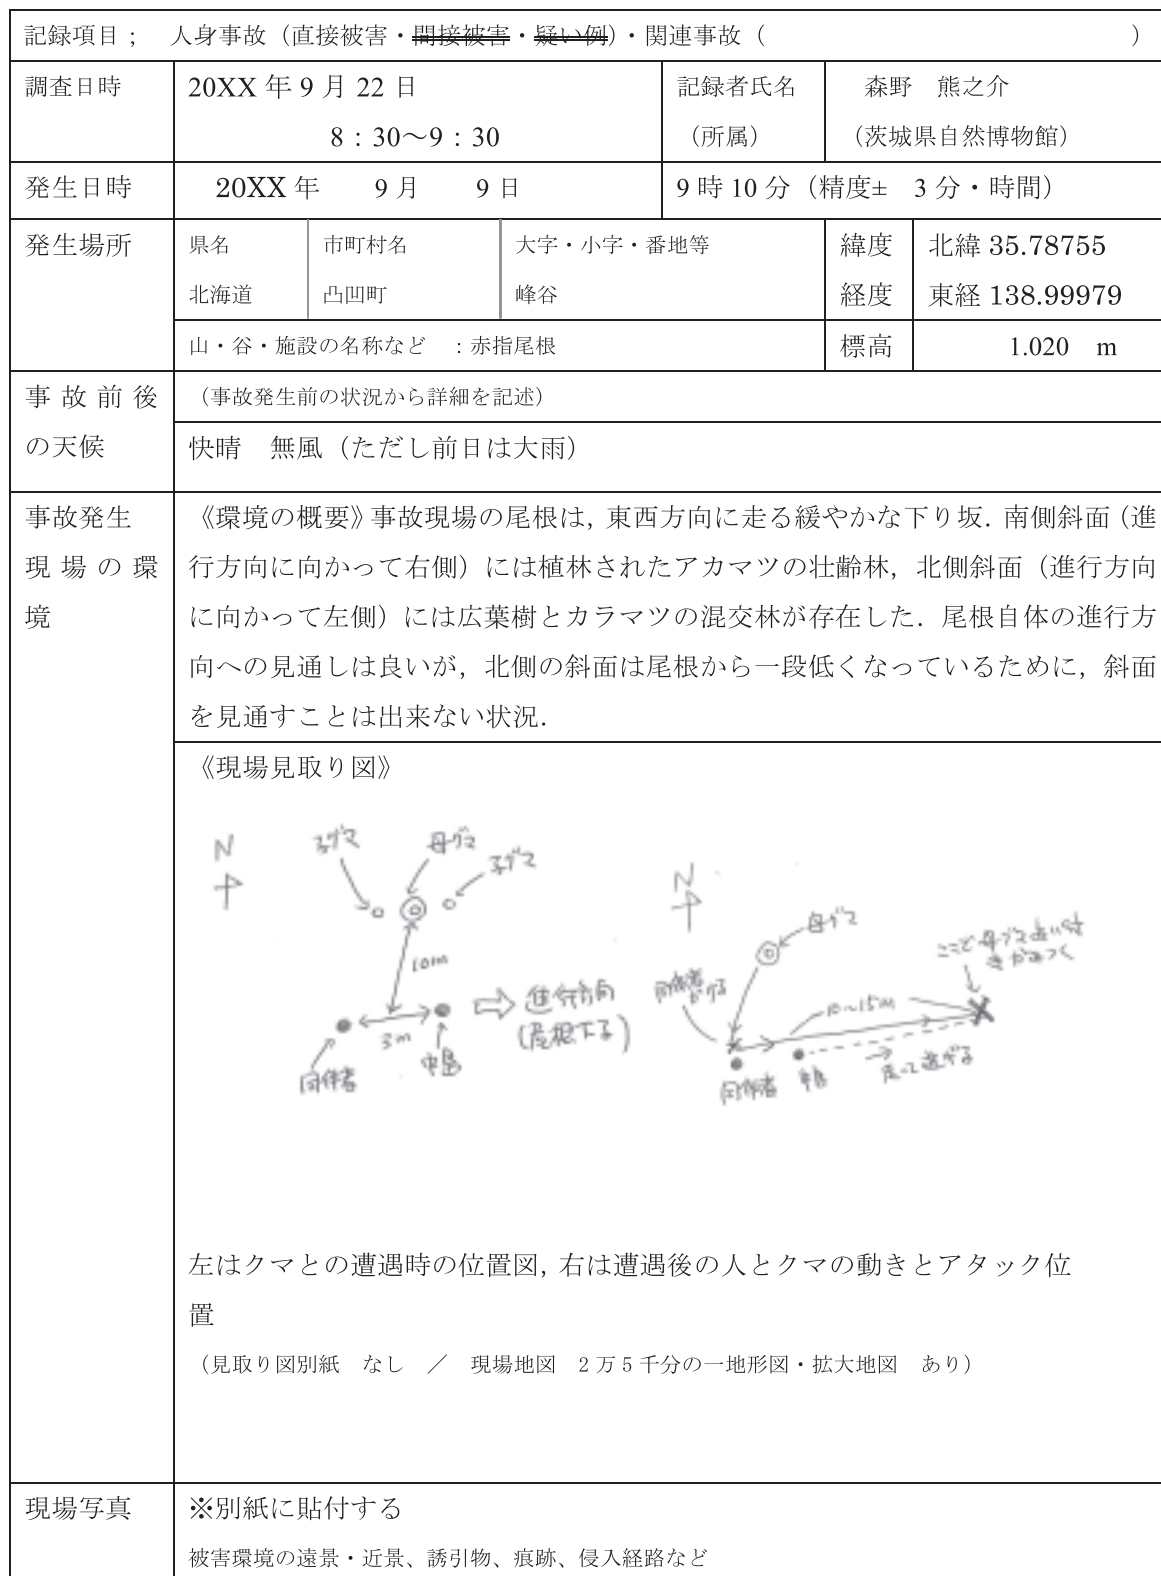 記録項目； 人身事故（直接被害・間接被害・疑い例）・関連事故（ ）
調査日時 20XX 年 9 月 22 日 記録者氏名 森野 熊之介
8：30～9：30 （所属） （茨城県自然博物館）
発生日時 20XX 年 9 月 9 日 9 時 10 分（精度± 3 分・時間）
発生場所 県名 市町村名 大字・小字・番地等 緯度 北緯 35.78755
北海道 凸凹町 峰谷 経度 東経 138.99979
山・谷・施設の名称など ：赤指尾根 標高 1.020 m
事故前後 （事故発生前の状況から詳細を記述）
の天候 快晴 無風（ただし前日は大雨）
事故発生 《環境の概要》事故現場の尾根は，東西方向に走る緩やかな下り坂．南側斜面（進
現場の環 行方向に向かって右側）には植林されたアカマツの壮齢林，北側斜面（進行方向
境 に向かって左側）には広葉樹とカラマツの混交林が存在した．尾根自体の進行方
向への見通しは良いが，北側の斜面は尾根から一段低くなっているために，斜面
を見通すことは出来ない状況．
《現場見取り図》
N 子グマ 母グマ 子グマ
10m
3m
進行方向
(尾根下る)
同伴者
N 母グマ
10~15m
同伴者 走って逃げる
左はクマとの遭遇時の位置図，右は遭遇後の人とクマの動きとアタック位
置
（見取り図別紙 なし ／ 現場地図 2 万 5 千分の一地形図・拡大地図 あり）
現場写真 ※別紙に貼付する
被害環境の遠景・近景、誘引物、痕跡、侵入経路など